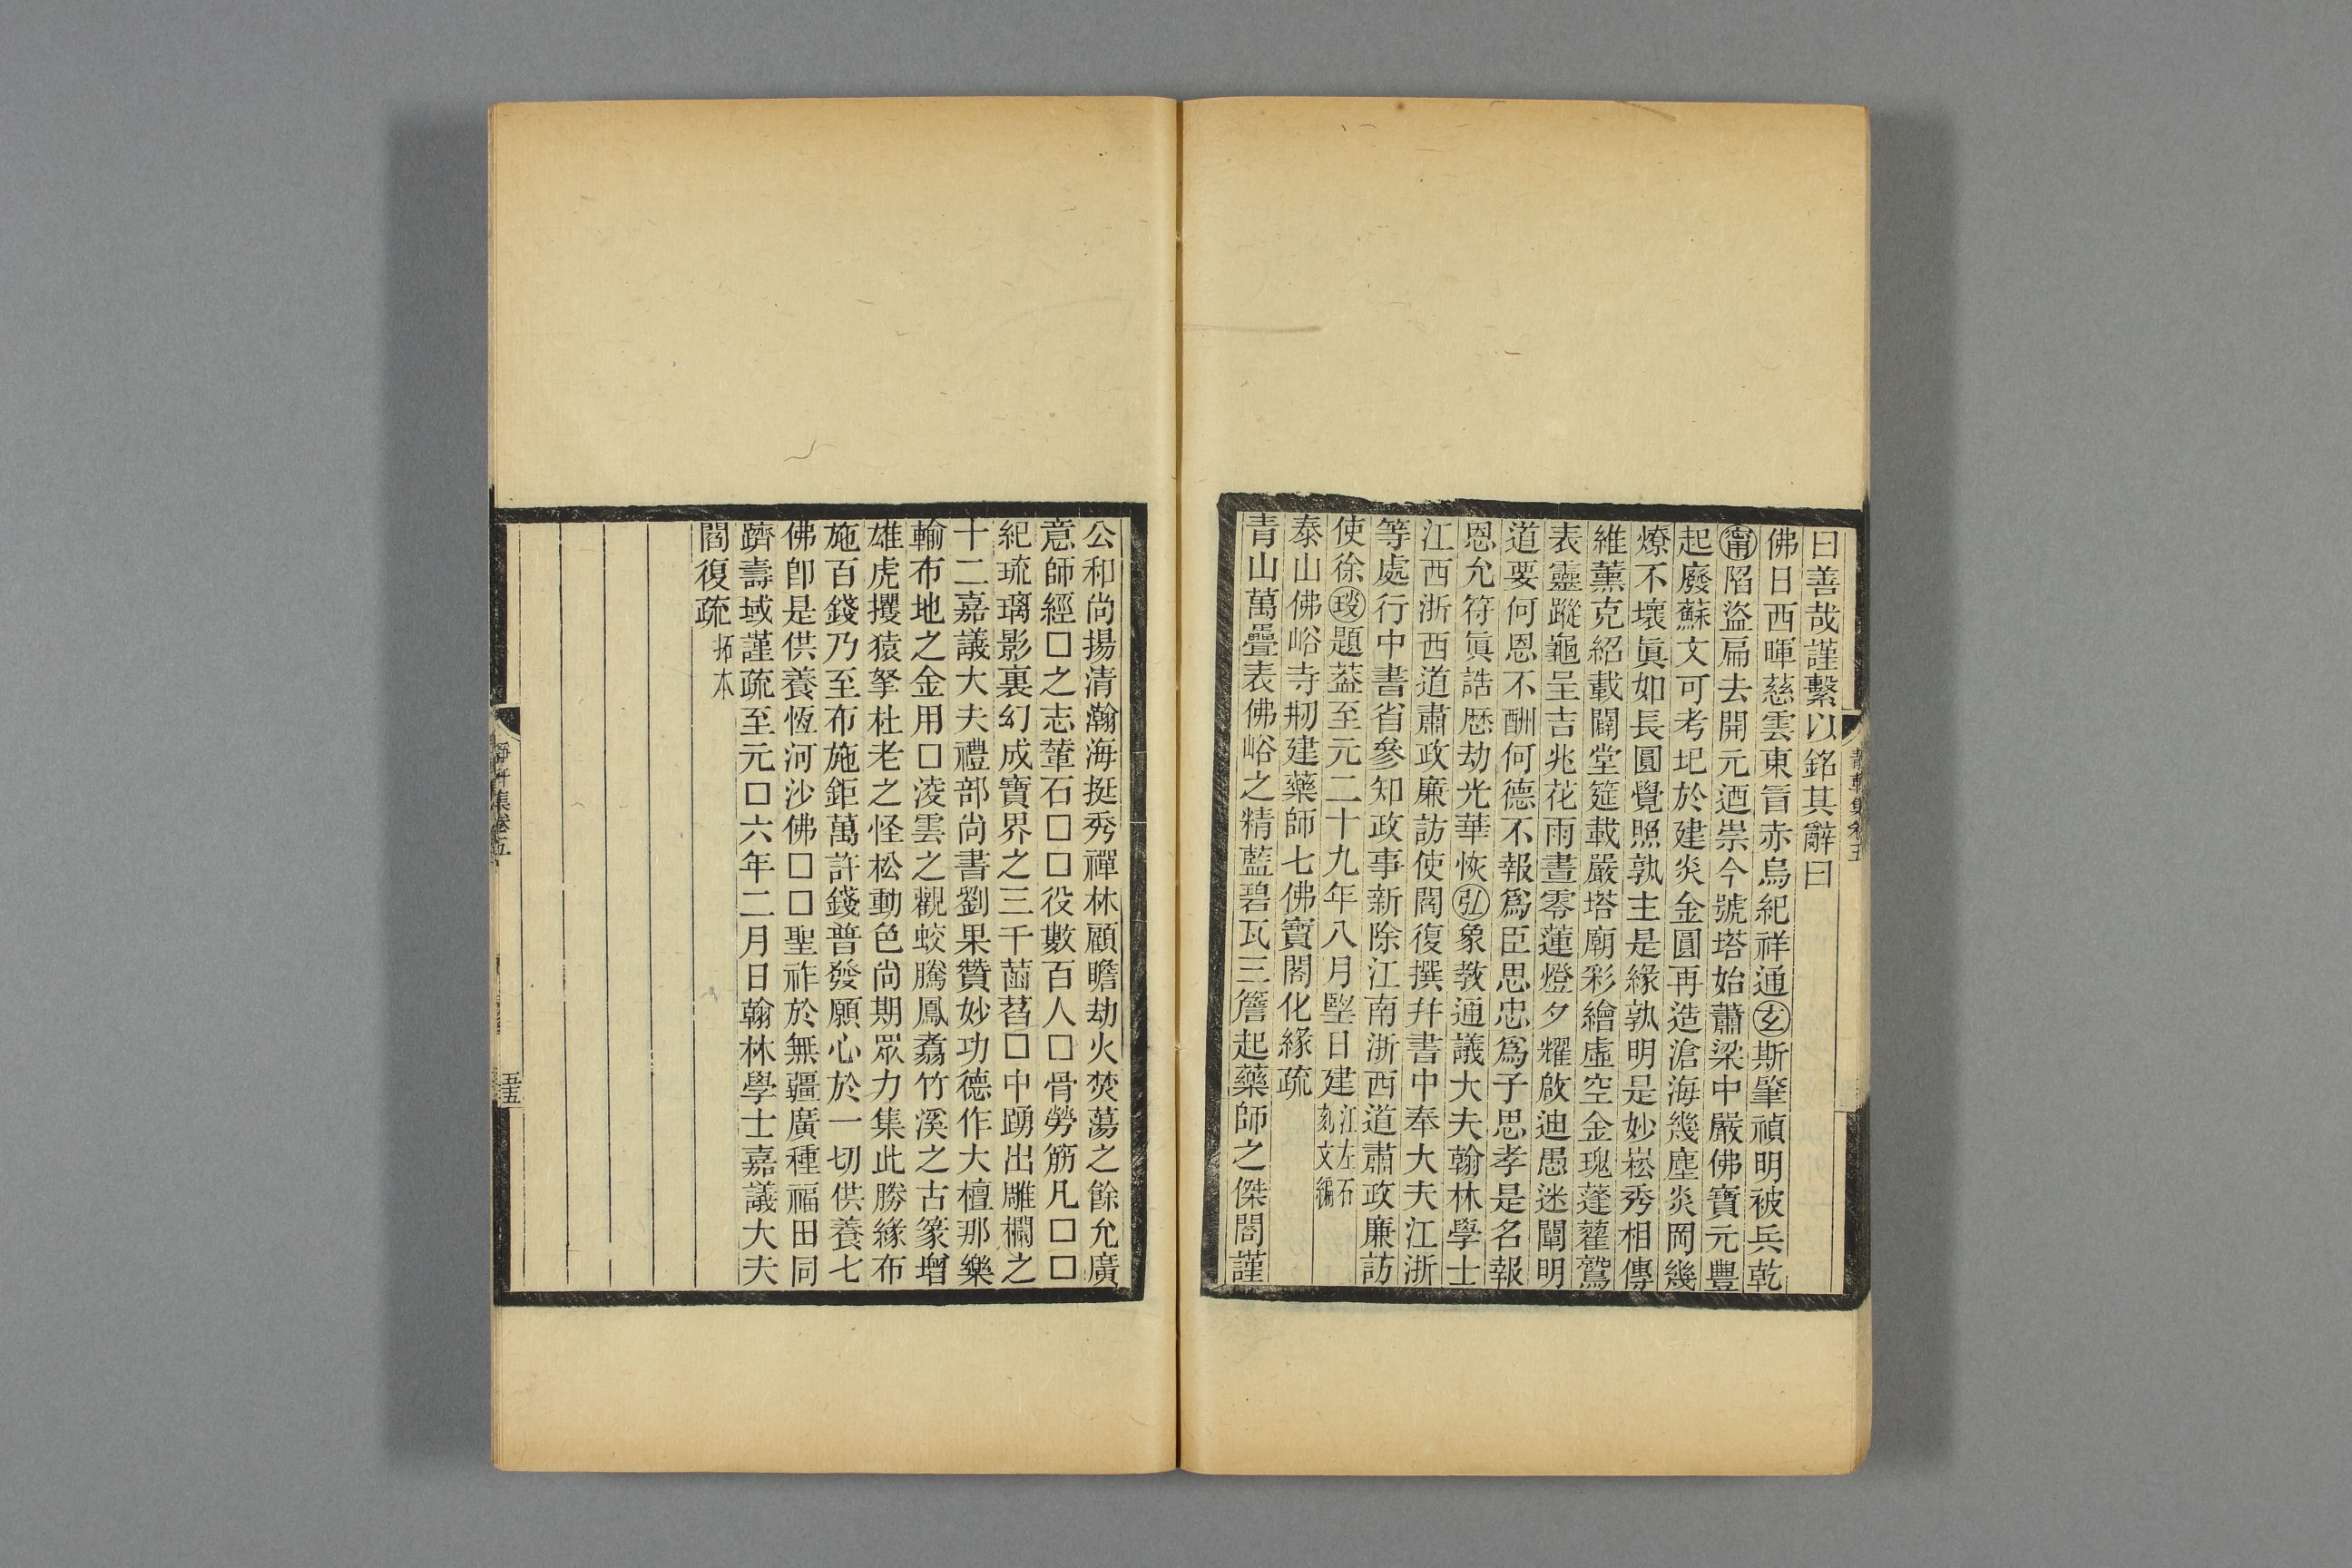 曰善哉謹繫以銘其辭曰
佛日西暉慈雲東旨赤烏紀祥通玄斯肇禎明被兵乾
甯陷盜扁去開元迺崇今號塔始蕭梁中嚴佛寶元豐
起廢蘇文可考圮於建炎金圓再造滄海幾塵炎岡幾
燎不壞眞如長圓覺照孰主是緣孰明是妙崧秀相傳
維薰克紹載闢堂筵載嚴塔廟彩繪虛空金瑰蓬藋鷲
表靈蹤龜呈吉兆花雨晝零蓮燈夕耀啟迪愚迷闡明
道要何恩不酬何德不報爲臣思忠爲子思孝是名報
恩允符眞誥歷劫光華恢弘象敎通議大夫翰林學士
江西浙西道肅政廉訪使閻復撰幷書中奉大夫江浙
等處行中書省參知政事新除江南浙西道肅政廉訪
使徐琰題葢至元二十九年八月堅日建江左石刻文編
泰山佛峪寺剏建藥師七佛寶閣化緣疏
青山萬疊表佛峪之精藍碧瓦三簷起藥師之傑閣謹
公和尚揚清瀚海挺秀禪林顧瞻劫火焚蕩之餘允廣
意師經□之志輦石□□役數百人□骨勞筋凡□□
紀琉璃影裏幻成寶界之三千菡萏□中踴出雕欄之
十二嘉議大夫禮部尚書劉果贊妙功德作大檀那樂
輸布地之金用□淩雲之觀蛟騰鳳翥竹溪之古篆增
雄虎攫猿拏杜老之怪松動色尚期眾力集此勝緣布
施百錢乃至布施鉅萬許錢普發願心於一切供養七
佛卽是供養恆河沙佛□□聖祚於無疆廣種福田同
躋壽域謹疏至元□六年二月日翰林學士嘉議大夫
閻復疏拓本
靜軒集卷五
五五